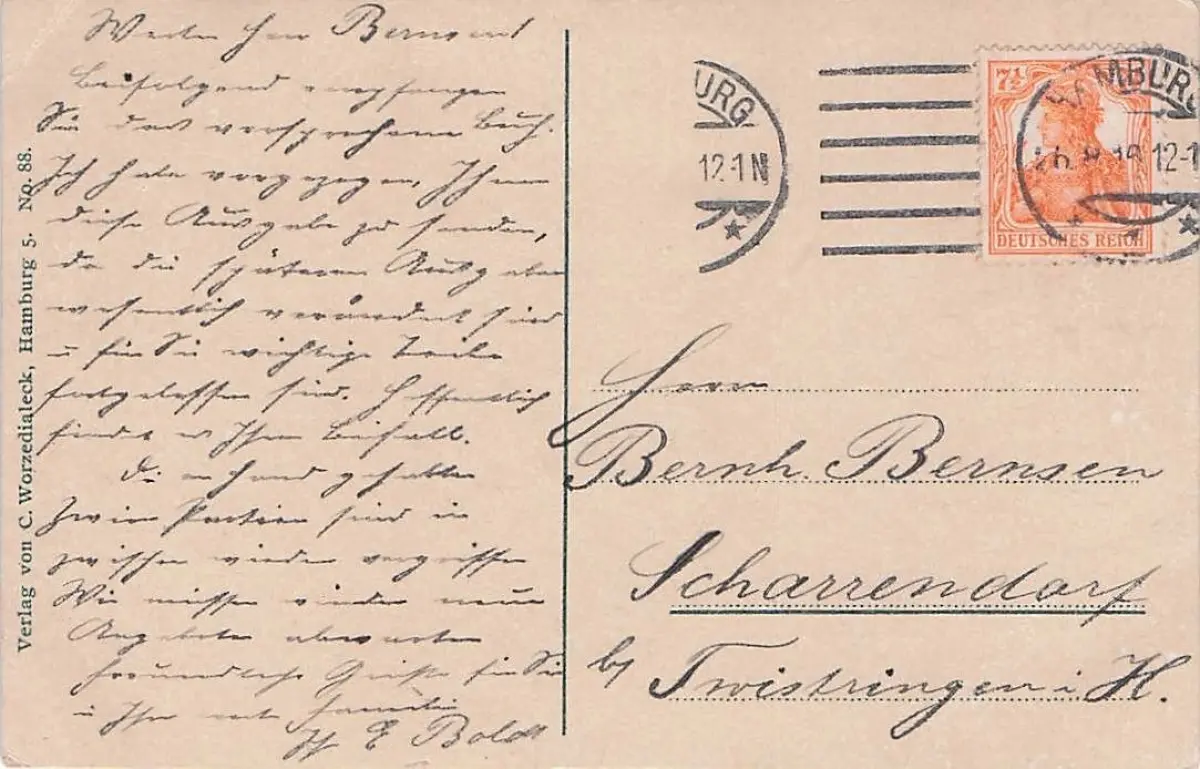 Werter Herr Bernsen!
Beifolgend empfangen
Sie das versprochene Buch.
Ich habe vorgezogen, Ihnen
diese Ausgabe zu senden,
da die späteren Ausgaben
wesentlich verändert sind
u für Sie wichtige Teile
fortgelassen sind. Hoffentlich
findet es Ihren Beifall.
Die in Hand gehabten
Partien sind in
zwischen wieder vergriffen
Wir müssen wieder neue
Angebote abwarten
Freundliche Grüße für Sie
u Ihre werte Familie
E Boldt
Verlag von C. Worzedialeck, Hamburg 5. No. 88.
BURG
12-1N
7½
HAMBURG
12-1
DEUTSCHES REICH
Herrn
Bernh. Bernsen
Scharrendorf
b/ Twistringen i H.